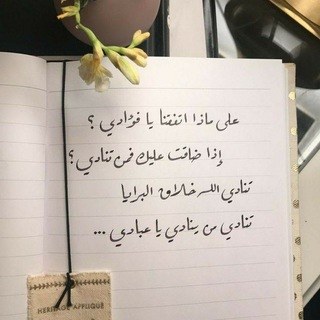 على ماذا اتفقنا يا فؤادي ؟
إذا ضاقت عليك فمن تنادي ؟
تنادي الله خلاق البرايا
تنادي من ينادي يا عبادي ...
HERITAGE APPLIQUÉ